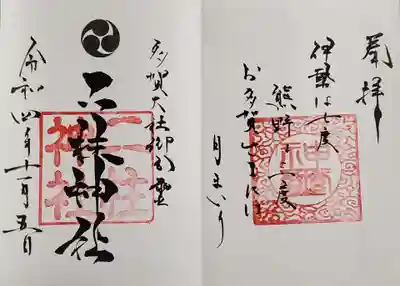 奉拝
伊勢は七度
熊野は三度
お多賀さまには
月まいり
多賀大社御分霊
二柱神社
二柱
神社
令和四年十一月五日